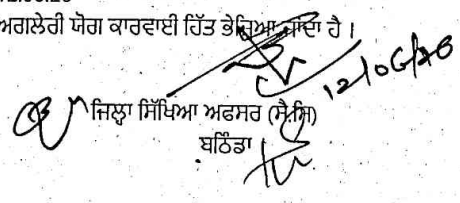 ਅਗਲੇਰੀ ਯੋਗ ਕਾਰਵਾਈ ਹਿੱਤ ਭੇਜਿਆ ਜਾਂਦਾ ਹੈ।
12/06/26
ਜਿਲ੍ਹਾ ਸਿੱਖਿਆ ਅਫਸਰ (ਸੈ.ਸਿ)
ਬਠਿੰਡਾ